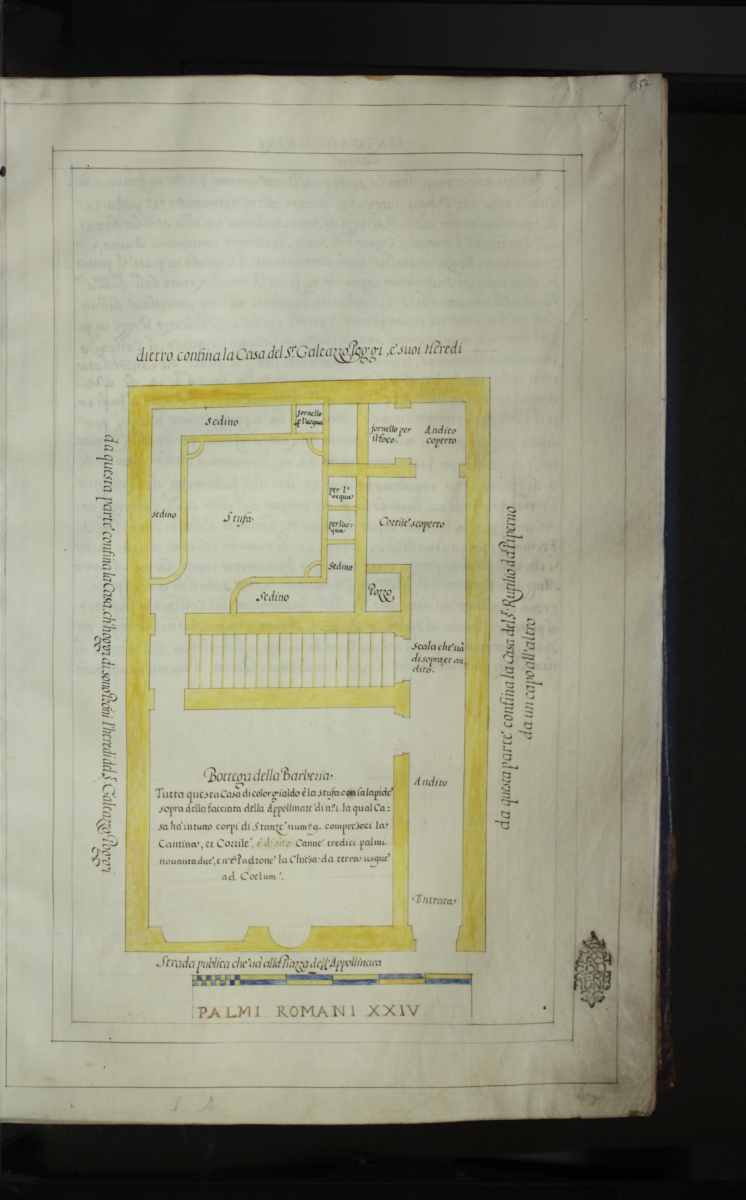 dietro confina la Casa del Sr. Galeazzo Poggi, e' suoi Heredi
Sedino
fornello
p l'acqua
fornello per
il foco.
Andito
coperto
da questa parte' confina la Casa, ch' hoggi di sono
l'heredi del Sr. Galeazzo Poggi
sedino
Stufa.
per l'
acqua
per l'ac-
qua
Cortile' scoperto
Sedino
Sedino
Pozzo
da questa parte' confina la Casa del Sr. Rutilio da Piperno
da un capo all'altro
scala che' uà
di sopra et an
dito.
Bottega della Barberia.
Tutta questa Casa di color gialdo è la stufa con la lapide'
sopra della facciata della Appollinare' di n.i. la qual Ca:
sa ha' in tutto corpi di Stanze' num. 9. compresoci la
Cantina, et Cortile', è di sito Canne' tredici palmi
novantadue', e n'è Padrone' la Chiesa da terra usque'
ad Coelum.
Andito
Entrata
Strada publica che' uà alla Piazza dell'Appollinara
PALMI ROMANI XXIV